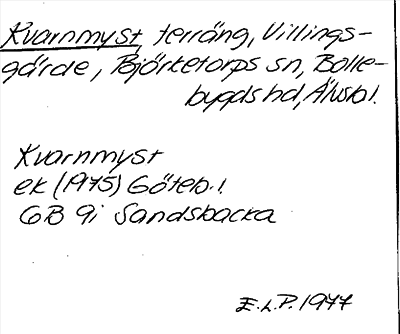 Kvarnmyst, terräng, Villings-
gärde, Björketorps sn, Bolle-
bygds hd, Älvsb l.
Kvarnmyst
ek (1975) Göteb. l.
6B 9i Sandsbacka
E.L.P. 1977